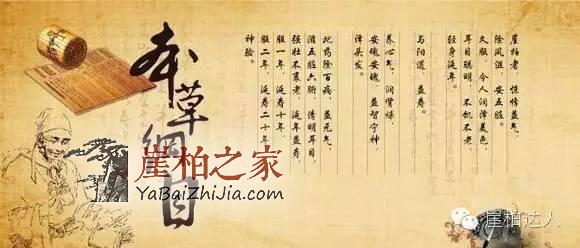 崖柏者 惊悸益气，
除风湿，安五脏。
久服，令人润泽美色，
耳目聪明，不饥不老，
轻身延年。
与阳道，益寿。
养心气，润肾燥
安魂安魄，益智宁神，
泽头发。
此药除百病，益元气，
滋五脏六腑，清明耳目，
强壮不衰老，延年益寿，
服一年，延寿十年，
服二年，延寿二十年，
神验。
本草綱目
崖柏之家
YaBaiZhiJia.com
崖柏达人